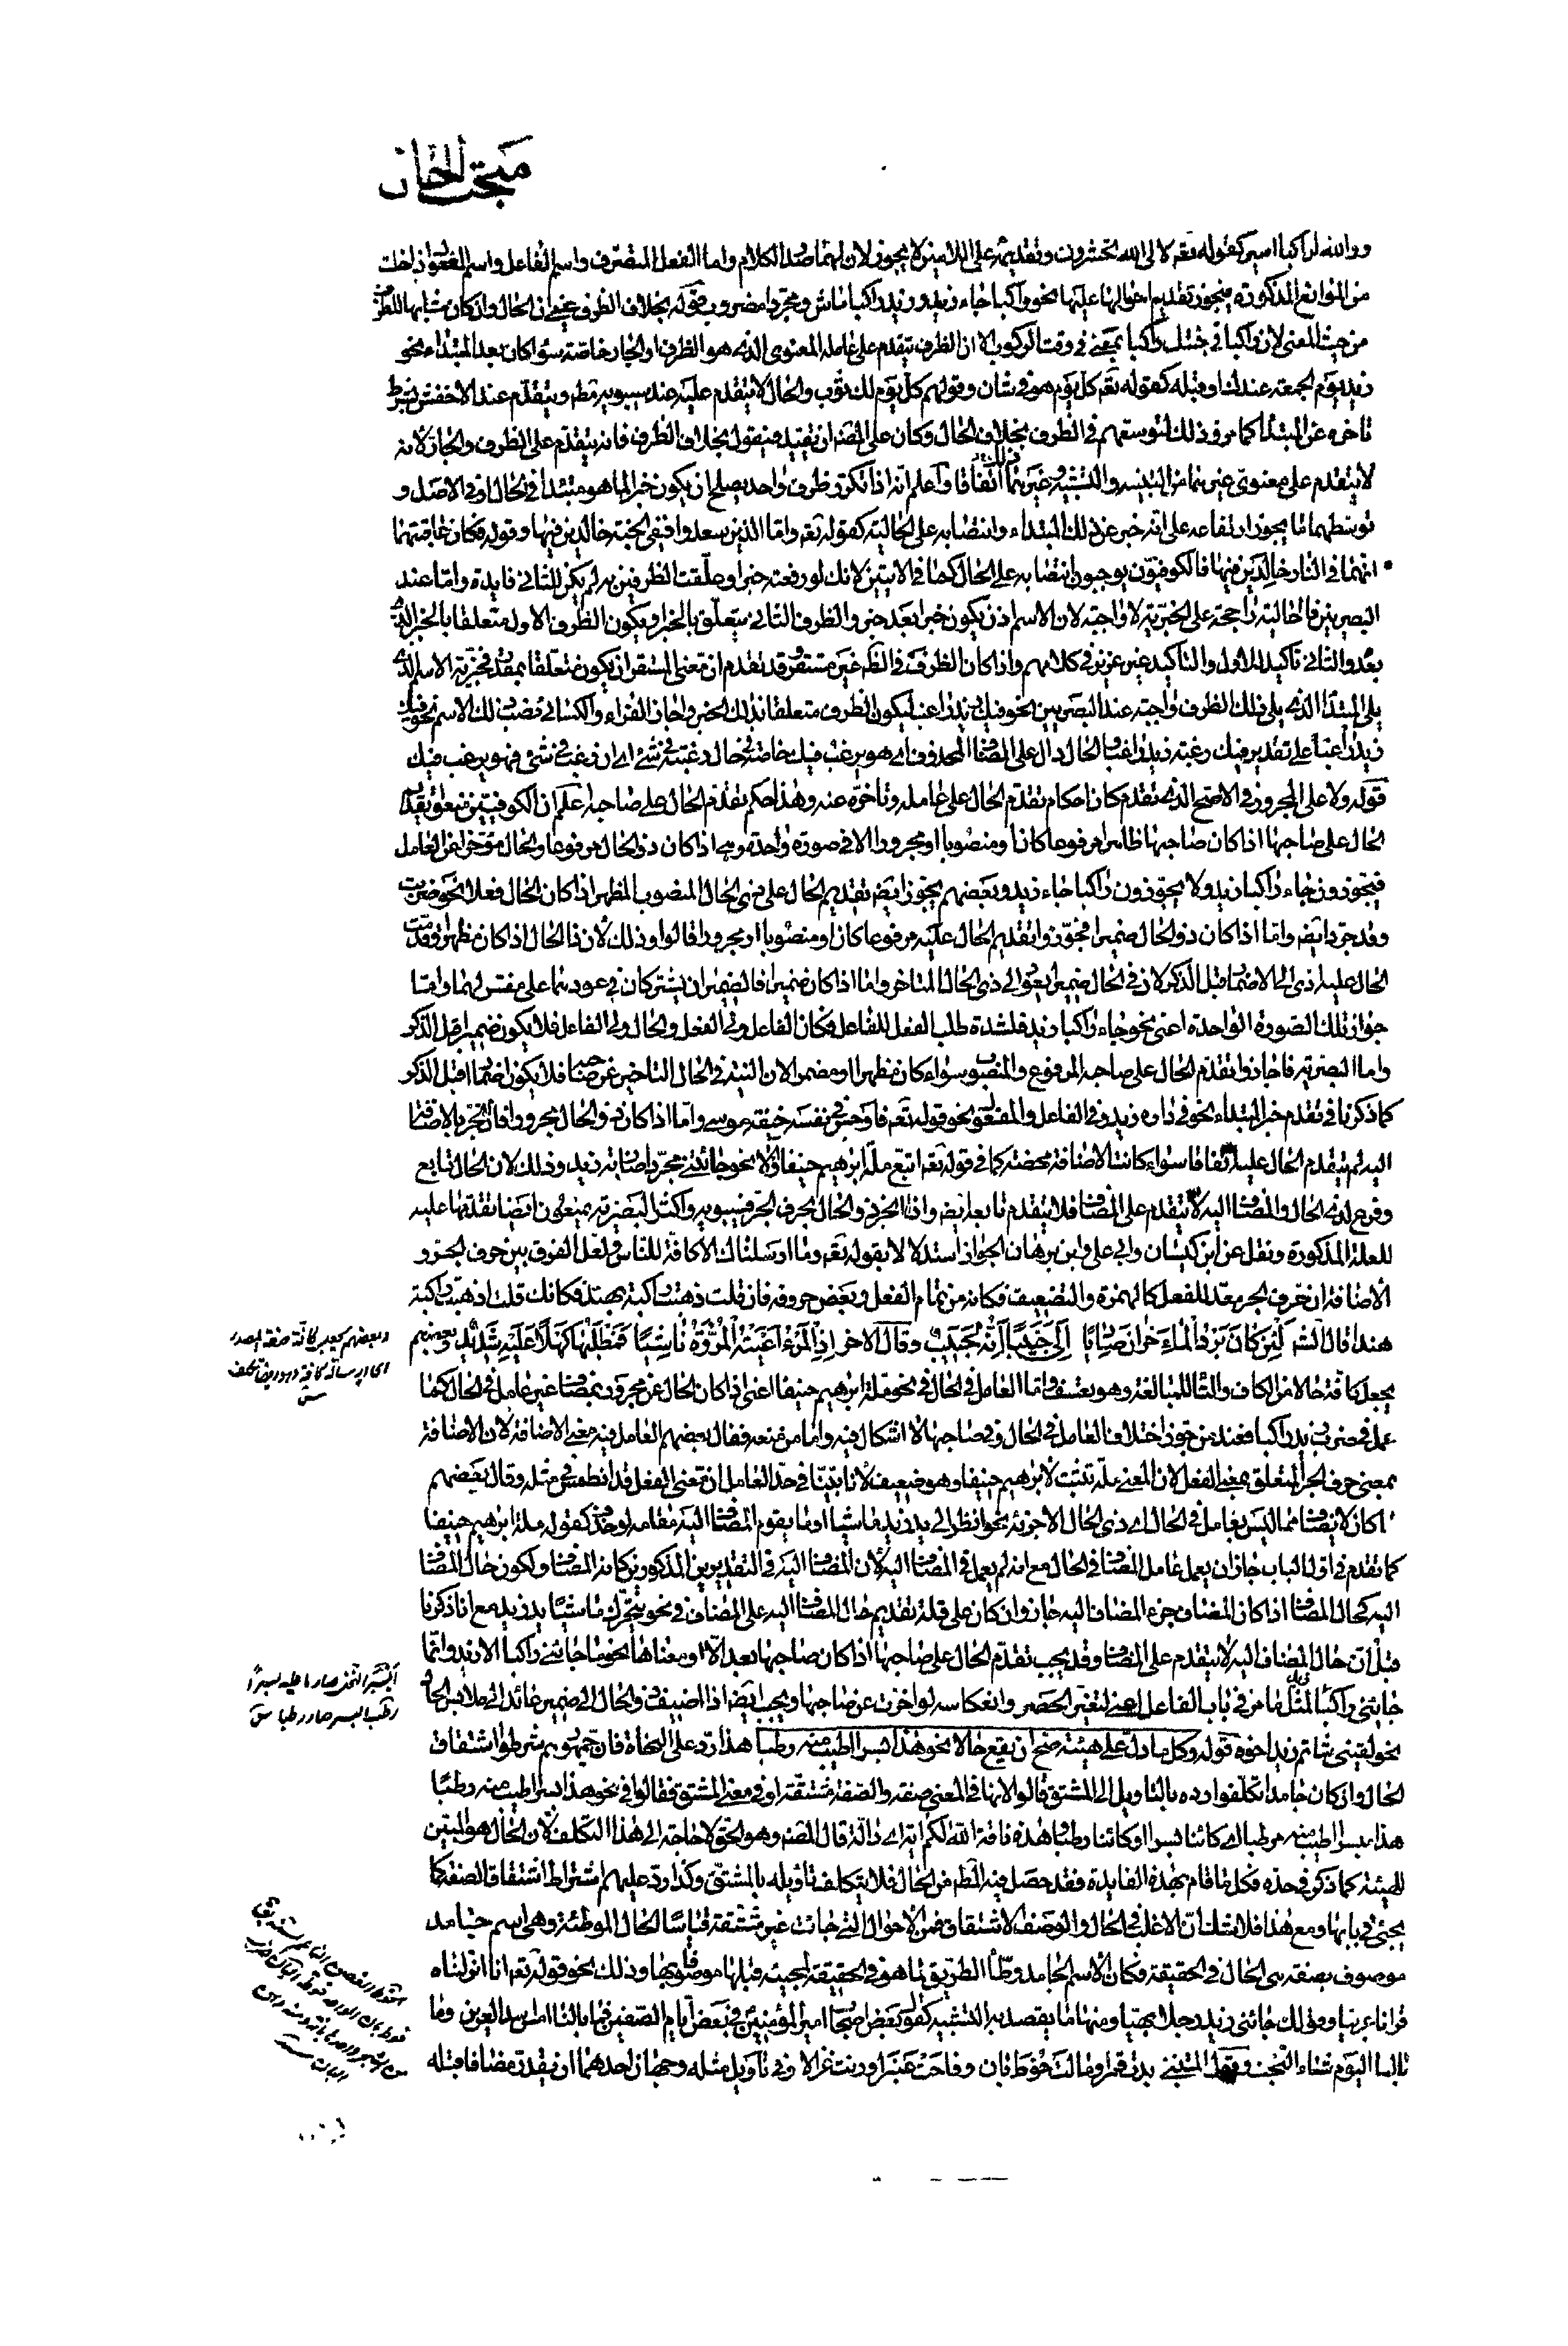 مبحث الحال
ووالله لراكبا اسير كقوله تعه لالى الله تحشرون وتقديمه على اللامين لا يجوز لان لهما صدر الكلام واما الفعل المتصرف واسم الفاعل واسم المفعول اذا خلت
من الموانع المذكورة فيجوز تقديم احوالها عليها نحو راكبا جاء زيد وزيد راكبا ماش ومجردا مضروب قوله بخلاف الظرف يعني ان الحال وان كان مشابها للظرف
من حيث المعنى لان راكبا في جئتك راكبا بمعنى في وقت الركوب الا ان الظرف يتقدم على عامله المعنوى الذى هو الظرف او الجار خاصة سواء كان بعد المبتداء نحو
زيد يوم الجمعة عندك او قبله كقوله تعه كل يوم هو في شان وقولهم كل يوم لك ثوب والحال لا يتقدم عليه عند سيبويه مطه ويتقدم عند الاخفش بشرط
تاخره عن المبتدا كما مر وذلك لتوسعهم في الظرف بخلاف الحال وكان على المصه ان يقيد فيقول بخلاف الظرف فانه يتقدم على الظرف والجار لانه
لا يتقدم على معنوى غيرهما من التنبيه والتشبيه وغير ذلك اتفاقا واعلم انه اذا تكرر ظرف واحد يصلح ان يكون خبرا لما هو مبتدا في الحال او في الاصل و
توسطهما ما يجوز ارتفاعه على انه خبر عن ذلك المبتداء وانتصابه على الحالية كقوله تعه واما الذين سعدوا ففي الجنة خالدين فيها وقوله فكان عاقبتهما
انهما في النار خالدين فيها فالكوفيون يوجبون انتصابه على الحال كما في الايتين لانك لو رفعته خبرا وعلقت الظرفين به لم يكن للثاني فايدة واما عند
البصريين فالحالية راجحة على الخبرية لا واجبة لان الاسم اذن يكون خبرا بعد خبر والظرف الثاني متعلق بالخبر او يكون الظرف الاول متعلقا بالخبر الذى
بعده والثاني تاكيد للاول والتاكيد غير عزيز في كلامهم واذا كان الظرف في الظه غير مستقر وقد تقدم ان معنى المستقر ان يكون متعلقا بمقدر فخبرية الاسم الذى
يلى المبتدا الذى يلى ذلك الظرف واجبة عند البصريين نحو فيك زيد راغب ليكون الظرف متعلقا بذلك الخبر واجاز الفراء والكسائى نصب ذلك الاسم نحو فيك
زيد راغبا على تقدير فيك رغبة زيد راغبا والحال دال على المضاف المحذوف اى هو يرغب فيك خاصة في حال رغبته في شئ اى ان رغب في شئ فهو يرغب فيك
قوله ولا على المجرور في الاصح الذى تقدم كان احكام تقدم الحال على عامله وتاخره عنه وهذا حكم تقدم الحال على صاحبه اعلم ان الكوفيين منعوا تقديم
الحال على صاحبها اذا كان صاحبها ظاهرا مرفوعا كان او منصوبا او مجرورا الا في صورة واحدة وهى اذا كان ذو الحال مرفوعا والحال مؤخرا عن العامل
فيجوزون جاء راكبا زيد ولا يجوزون راكبا جاء زيد وبعضهم يجوز ايضه تقديم الحال على ذى الحال المنصوب المظهر اذا كان الحال فعلا نحو ضربت
وقد جرد زيدا واما اذا كان ذو الحال ضميرا فجوزوا تقديم الحال عليه مرفوعا كان او منصوبا او مجرورا قالوا وذلك لان ذا الحال اذا كان مظهرا وقدمت
الحال عليه ادى الى الاضمار قبل الذكر لان في الحال ضميرا يعود الى ذى الحال المتاخر واما اذا كان ضميرا فالضميران يشتركان في عودهما على مفسر لهما واما
جواز تلك الصورة الواحدة اعنى نحو جاء راكبا زيد فلشدة طلب الفعل للفاعل فكان الفاعل ولى الفعل والحال ولى الفاعل فلا يكون ضميرا قبل الذكر
واما البصرية فاجازوا تقدم الحال على صاحبه المرفوع والمنصوب سواء كان مظهرا او مضمرا لان النية في الحال التاخير عن صاحبه فلا يكون اضمارا قبل الذكر
كما ذكرنا في تقدم خبر المبتداء نحو في داره زيد وفي الفاعل والمفعول نحو قوله تعه فاوجس في نفسه خيفة موسى واما اذا كان ذو الحال مجرورا فان انجر بالاضافة
اليه لم يتقدم الحال عليه اتفاقا سواء كانت الاضافة محضة كما في قوله تعه اتبع ملة ابرهيم حنيفا اولا نحو جائتنى مجردا ضاربة زيد وذلك لان الحال تابع
وفرع لذى الحال والمضاف اليه لا يتقدم على المضاف فلا يتقدم تابعه ايضه وان انجر ذو الحال بحرف الجر فسيبويه واكثر البصرية يمنعون ايضا تقدمها عليه
للعلة المذكورة ونقل عن ابن كيسان وابى على وابن برهان الجواز استدلالا بقوله تعه وما ارسلناك الا كافة للناس ولعل الفرق بين حرف الجر و
الاضافة ان حرف الجر معد للفعل كالهمزة والتضعيف فكانه من تمام الفعل وبعض حروفه فاذا قلت ذهبت راكبة بهند فكانك قلت اذهبت راكبة
هندا قال الشه لئن كان برد الماء حران صاديا الى حبيبا انه لحبيب وقال الاخر اذا المرء اعيته المروة ناشيا فمطلبها كهلا عليه شديد وبعضهم
يجعل كافة حالا من الكاف والتاء للمبالغة وهو تعسف واما العامل في الحال في نحو ملة ابرهيم حنيفا اعنى اذا كان الحال عن مجرور بمضاف غير عامل في الحال كما
عمل في ضرب زيد راكبا فعند من جوز اختلاف العامل في الحال وفي صاحبها لا اشكال فيه واما من منعه فقال بعضهم العامل فيه معنى الاضافة لان الاضافة
بمعنى حرف الجر المتعلق بمعنى الفعل لان المعنى ملة تثبت لابرهيم حنيفا وهو ضعيف لانا بينا في حد العامل ان معنى الفعل قد انطمس في مثله وقال بعضهم
كما تقدم في اول الباب جاز ان يعمل عامل المضاف في الحال مع انه لم يعمل في المضاف اليه لان المضاف اليه في التقديرين المذكورين كانه المضاف ولكون حال المضاف
اليه كحال المضاف اذا كان المضاف جزء المضاف اليه جاز وان كان على قلة تقديم حال المضاف اليه على المضاف في نحو تتحرك ماشيا يد زيد مع انا ذكرنا
قبل ان حال المضاف اليه لا يتقدم على المضاف وقد يجب تقدم الحال على صاحبها اذا كان صاحبها بعد الا او معناها نحو ما جائنى راكبا الا زيد وانما
جائنى راكبا زيد لمثل ما مر في باب الفاعل اعنى لتغير الحصر وانعكاسه لو اخرت عن صاحبها ويجب ايضه اذا اضيف ذو الحال الى ضمير عائد الى ملابس الحال
نحو لقينى شاتم زيد اخوه قوله وكل ما دل على هيئة صح ان يقع حالا نحو هذا بسرا اطيب منه رطبا هذا رد على النحاة فان جمهورهم شرطوا اشتقاق
الحال وان كان جامدا تكلفوا رده بالتاويل الى المشتق قالوا لانها في المعنى صفة والصفة مشتقة او في معنى المشتق فقالوا في نحو هذا بسرا اطيب منه رطبا
هذا مبسرا اطيب منه مرطبا اى كائنا بسرا او كائنا رطبا وهذه ناقة الله لكم اية اى دالة قال المصه وهو الحق لا حاجة الى هذا التكلف لان الحال هو المبين
للهيئة كما ذكر في حده فكل ما قام بهذه الفايدة فقد حصل فيه المطه من الحال فلا يتكلف تاويله بالمشتق وكذا رد عليهم اشتراط اشتقاق الصفة كما
يجئ في بابها ومع هذا فلا شك ان الاغلب في الحال والوصف الاشتقاق فمن الاحوال التى جائت غير مشتقة قياسا الحال الموطئة وهى اسم جامد
موصوف بصفة هى الحال في الحقيقة فكان الاسم الجامد وطأ الطريق لما هو في الحقيقة لمجيئه قبلها موصوفا بها وذلك نحو قوله تعه انا انزلناه
قرانا عربيا وقولك جائنى زيد رجلا بهيا ومنها ما يقصد به التشبيه كقول بعض اصحاب امير المؤمنين في بعض ايام الصفين فما بالنا امس اسد العرين وما
بالنا اليوم شاء النجف وقول المتنبى بدت قمرا ومالت خوط بان وفاحت عنبرا ورنت غزالا وفى تاويل مثله وجهان احدهما ان يقدر مضاف قبله
وبعضهم يجعل كافة صفة لمصدر
اى ارسالة كافة وهو ايضا تكلف
ابسر النخل صار ما عليه بسرا
رطب البسر صار رطبا ص